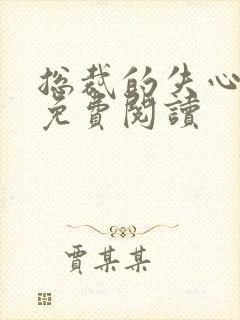 总裁的失心
免費閱讀
賈某某